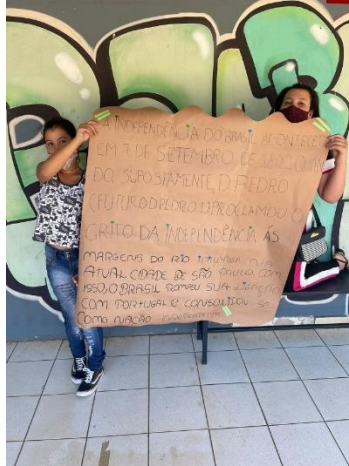 A INDEPENDÊNCIA DO BRASIL ACONTECEU
EM 7 DE SETEMBRO DE 1822 QUAN
DO, SUPOSTAMENTE, D. PEDRO
(FUTURO D. PEDRO I) PROCLAMOU O
GRITO DA INDEPENDÊNCIA ÀS
MARGENS DO RIO IPIRANGA, NA
ATUAL CIDADE DE SÃO PAULO. COM
ISSO, O BRASIL ROMPEU SUA LIGAÇÃO
COM PORTUGAL E CONSOLIDOU-SE
COMO NAÇÃO